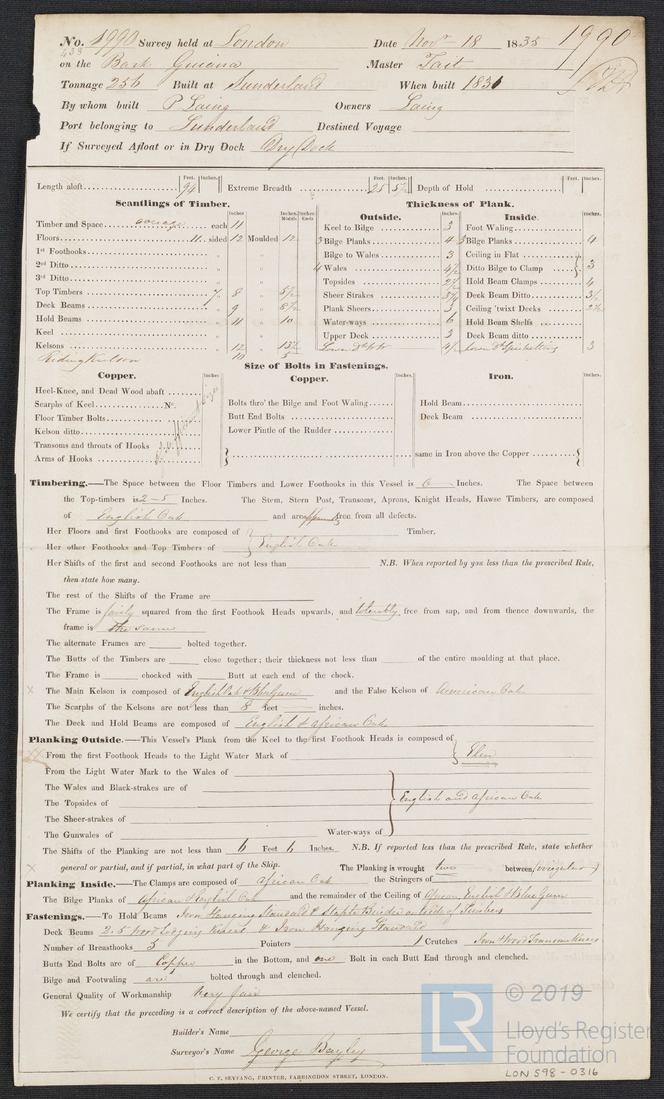 No. 1990 Survey held at London Date Novr 18 1835 1990
on the Bark Guiana Master Tait
Tonnage 256 Built at Sunderland When built 1831
By whom built P Laing Owners Laing
Port belonging to Sunderland Destined Voyage
If Surveyed Afloat or in Dry Dock Dry Dock
Feet. Inches. Feet. Inches. Feet. Inches.
Length aloft 94 Extreme Breadth 25 5½ Depth of Hold
Scantlings of Timber. Thickness of Plank.
Outside. Inside.
Timber and Space average each 11 Keel to Bilge 3 Foot Waling
Floors 11 sided 12 Moulded 12 3 Bilge Planks 4 3 Bilge Planks 4
1st Foothooks Bilge to Wales 3 Ceiling in Flat
2nd Ditto 4 Wales 4½ Ditto Bilge to Clamp 3
3rd Ditto Topsides Hold Beam Clamps 4
Top Timbers 7 8 Sheer Strakes Deck Beam Ditto
Deck Beams 9 Plank Sheers 3 Ceiling 'twixt Decks
Hold Beams 11 10 Water-ways 6 Hold Beam Shelfs
Keel Upper Deck 3 Deck Beam ditto
Kelsons 12 3
Riding Kelson 10
Size of Bolts in Fastenings.
Copper. Copper. Iron.
Heel-Knee, and Dead Wood abaft
Scarphs of Keel No. Bolts thro' the Bilge and Foot Waling Hold Beam
Floor Timber Bolts Butt End Bolts Deck Beam
Kelson ditto Lower Pintle of the Rudder
Transoms and throats of Hooks same in Iron above the Copper
Arms of Hooks
Timbering.—The Space between the Floor Timbers and Lower Foothooks in this Vessel is 6 Inches. The Space between
the Top-timbers is 2-5 Inches. The Stem, Stern Post, Transoms, Aprons, Knight Heads, Hawse Timbers, are composed
of English Oak and are apparently free from all defects.
Her Floors and first Foothooks are composed of Timber.
Her other Foothooks and Top Timbers of English Oak
Her Shifts of the first and second Foothooks are not less than N.B. When reported by you less than the prescribed Rule,
then state how many.
The rest of the Shifts of the Frame are
The Frame is fairly squared from the first Foothook Heads upwards, and tolerably free from sap, and from thence downwards, the
frame is the same
The alternate Frames are bolted together.
The Butts of the Timbers are close together; their thickness not less than of the entire moulding at that place.
The Frame is chocked with Butt at each end of the chock.
The Main Kelson is composed of English Oak & Blue Gum and the False Kelson of American Oak
The Scarphs of the Kelsons are not less than 8 feet inches.
The Deck and Hold Beams are composed of English & African Oak
Planking Outside.—This Vessel's Plank from the Keel to the first Foothook Heads is composed of
From the first Foothook Heads to the Light Water Mark of Elm
From the Light Water Mark to the Wales of
The Wales and Black-strakes are of
The Topsides of English and African Oak
The Sheer-strakes of
The Gunwales of Water-ways of
The Shifts of the Planking are not less than 6 Feet 6 Inches. N.B. If reported less than the prescribed Rule, state whether
general or partial, and if partial, in what part of the Ship. The Planking is wrought two between (irregular)
Planking Inside.—The Clamps are composed of African Oak the Stringers of
The Bilge Planks of African & English Oak and the remainder of the Ceiling of African, English & Blue Gum
Fastenings.—To Hold Beams Iron Hanging Standard & Staple
Deck Beams 2.5 Wood Lodging Knees & Iron Hanging Standard
Number of Breasthooks 5 Pointers 1 Crutches Iron Wood Transom Knees
Butts End Bolts are of Copper in the Bottom, and one Bolt in each Butt End through and clenched.
Bilge and Footwaling are bolted through and clenched.
General Quality of Workmanship Very fair
We certify that the preceding is a correct description of the above-named Vessel.
Builder's Name
Surveyor's Name George Bayly
C. F. SEYFANG, PRINTER, FARRINGDON STREET, LONDON.
LR © 2019
Lloyd's Register
Foundation
LON 598-0316